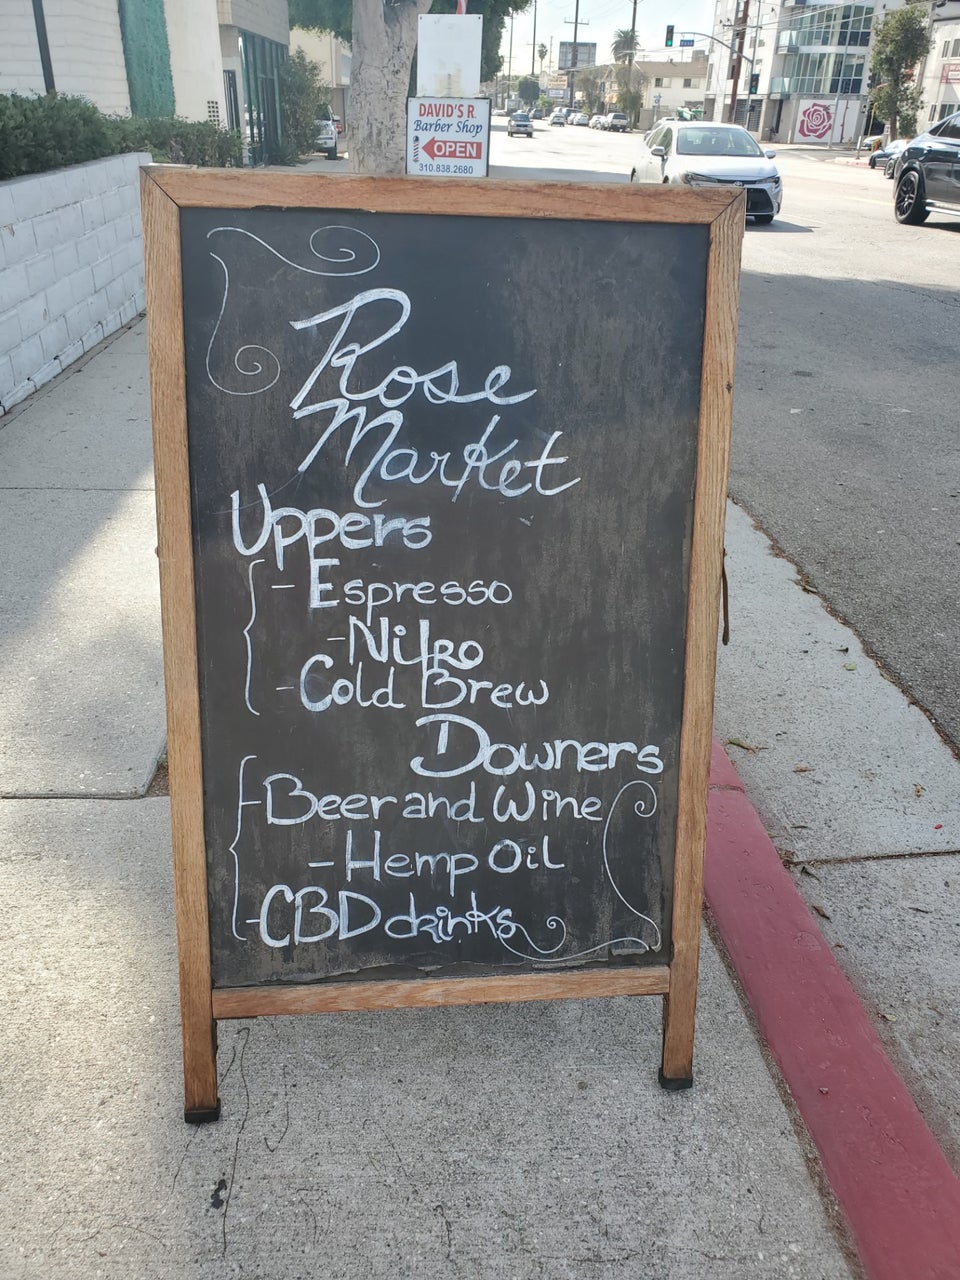 DAVID'S R.
Barber Shop
OPEN
310.838.2680
Rose
Market
Uppers
- Espresso
- Nitro
- Cold Brew
Downers
- Beer and Wine
- Hemp Oil
- CBD drinks